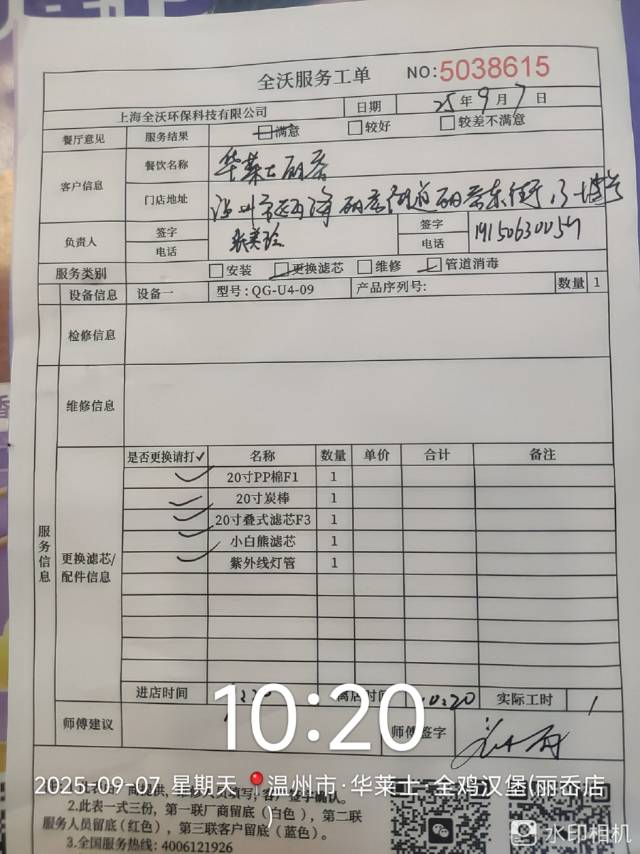 全沃服务工单 NO:5038615
上海全沃环保科技有限公司 日期 25年9月7日
餐厅意见 服务结果 满意 较好 较差不满意
客户信息 餐饮名称 华莱士丽岙
门店地址
负责人 签字 签字
电话 电话
服务类别 安装 更换滤芯 维修 管道消毒
设备信息 设备一 型号:QG-U4-09 产品序列号: 数量 1
检修信息
维修信息
服务信息
更换滤芯/配件信息
是否更换请打✓ 名称 数量 单价 合计 备注
✓ 20寸PP棉F1 1
✓ 20寸炭棒 1
✓ 20寸叠式滤芯F3 1
✓ 小白熊滤芯 1
✓ 紫外线灯管 1
进店时间 离店时间 10:20 实际工时 1
师傅建议 师傅签字
10:20
2025-09-07 星期天 温州市·华莱士·全鸡汉堡(丽岙店)
2.此表一式三份，第一联厂商留底(白色)，第二联
服务人员留底(红色)，第三联客户留底(蓝色)。
3.全国服务热线: 4006121926
水印相机